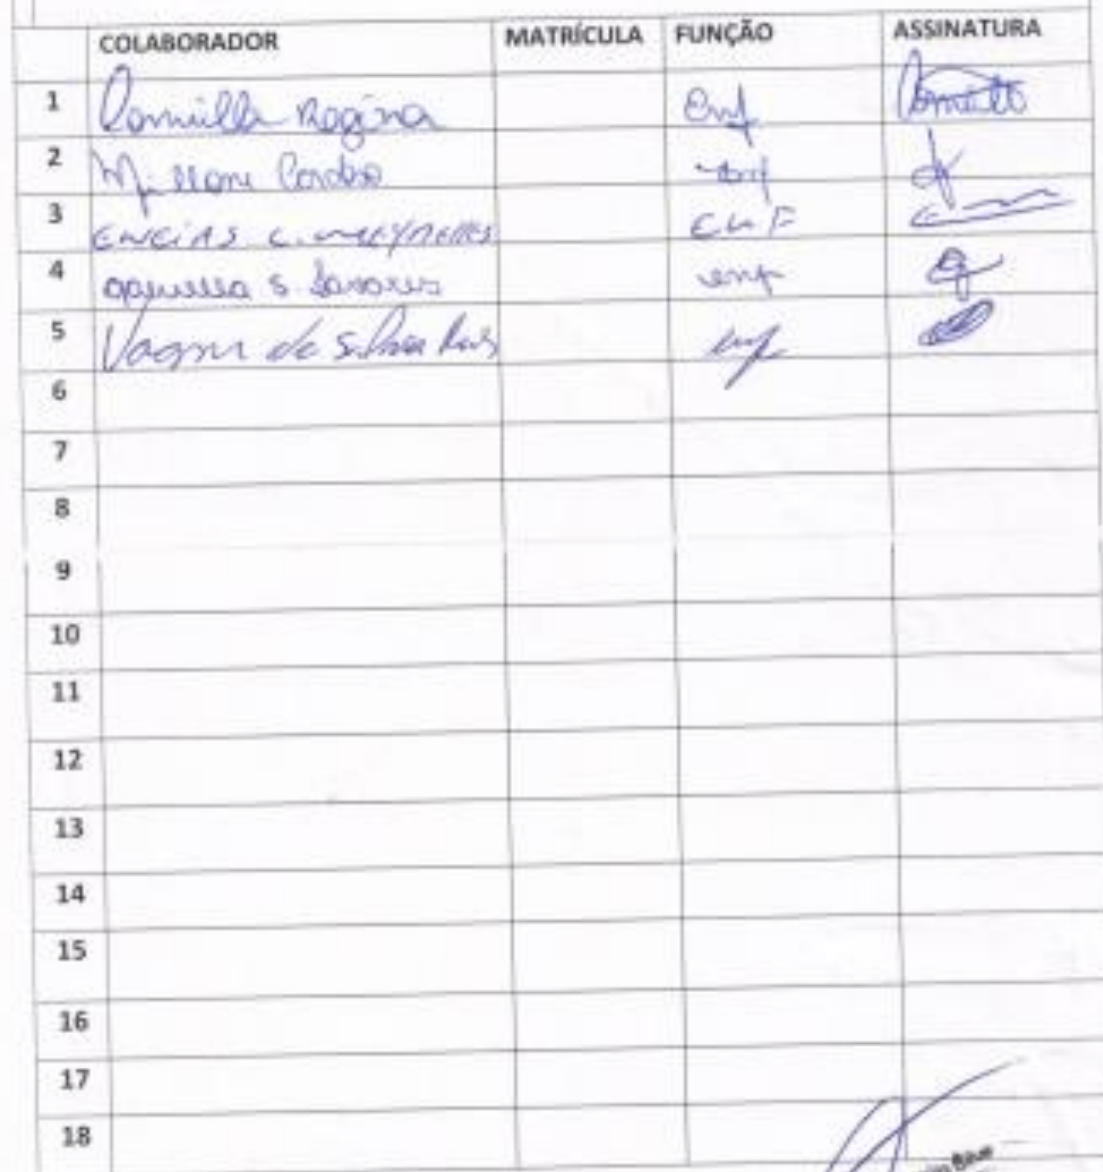 COLABORADOR MATRÍCULA FUNÇÃO ASSINATURA
1 Camilla Regina Enf Camilla
2 Cardoso enf
3 ENEIAS C. ENF
4 S. enf
5 Vagner da Silva enf
6
7
8
9
10
11
12
13
14
15
16
17
18